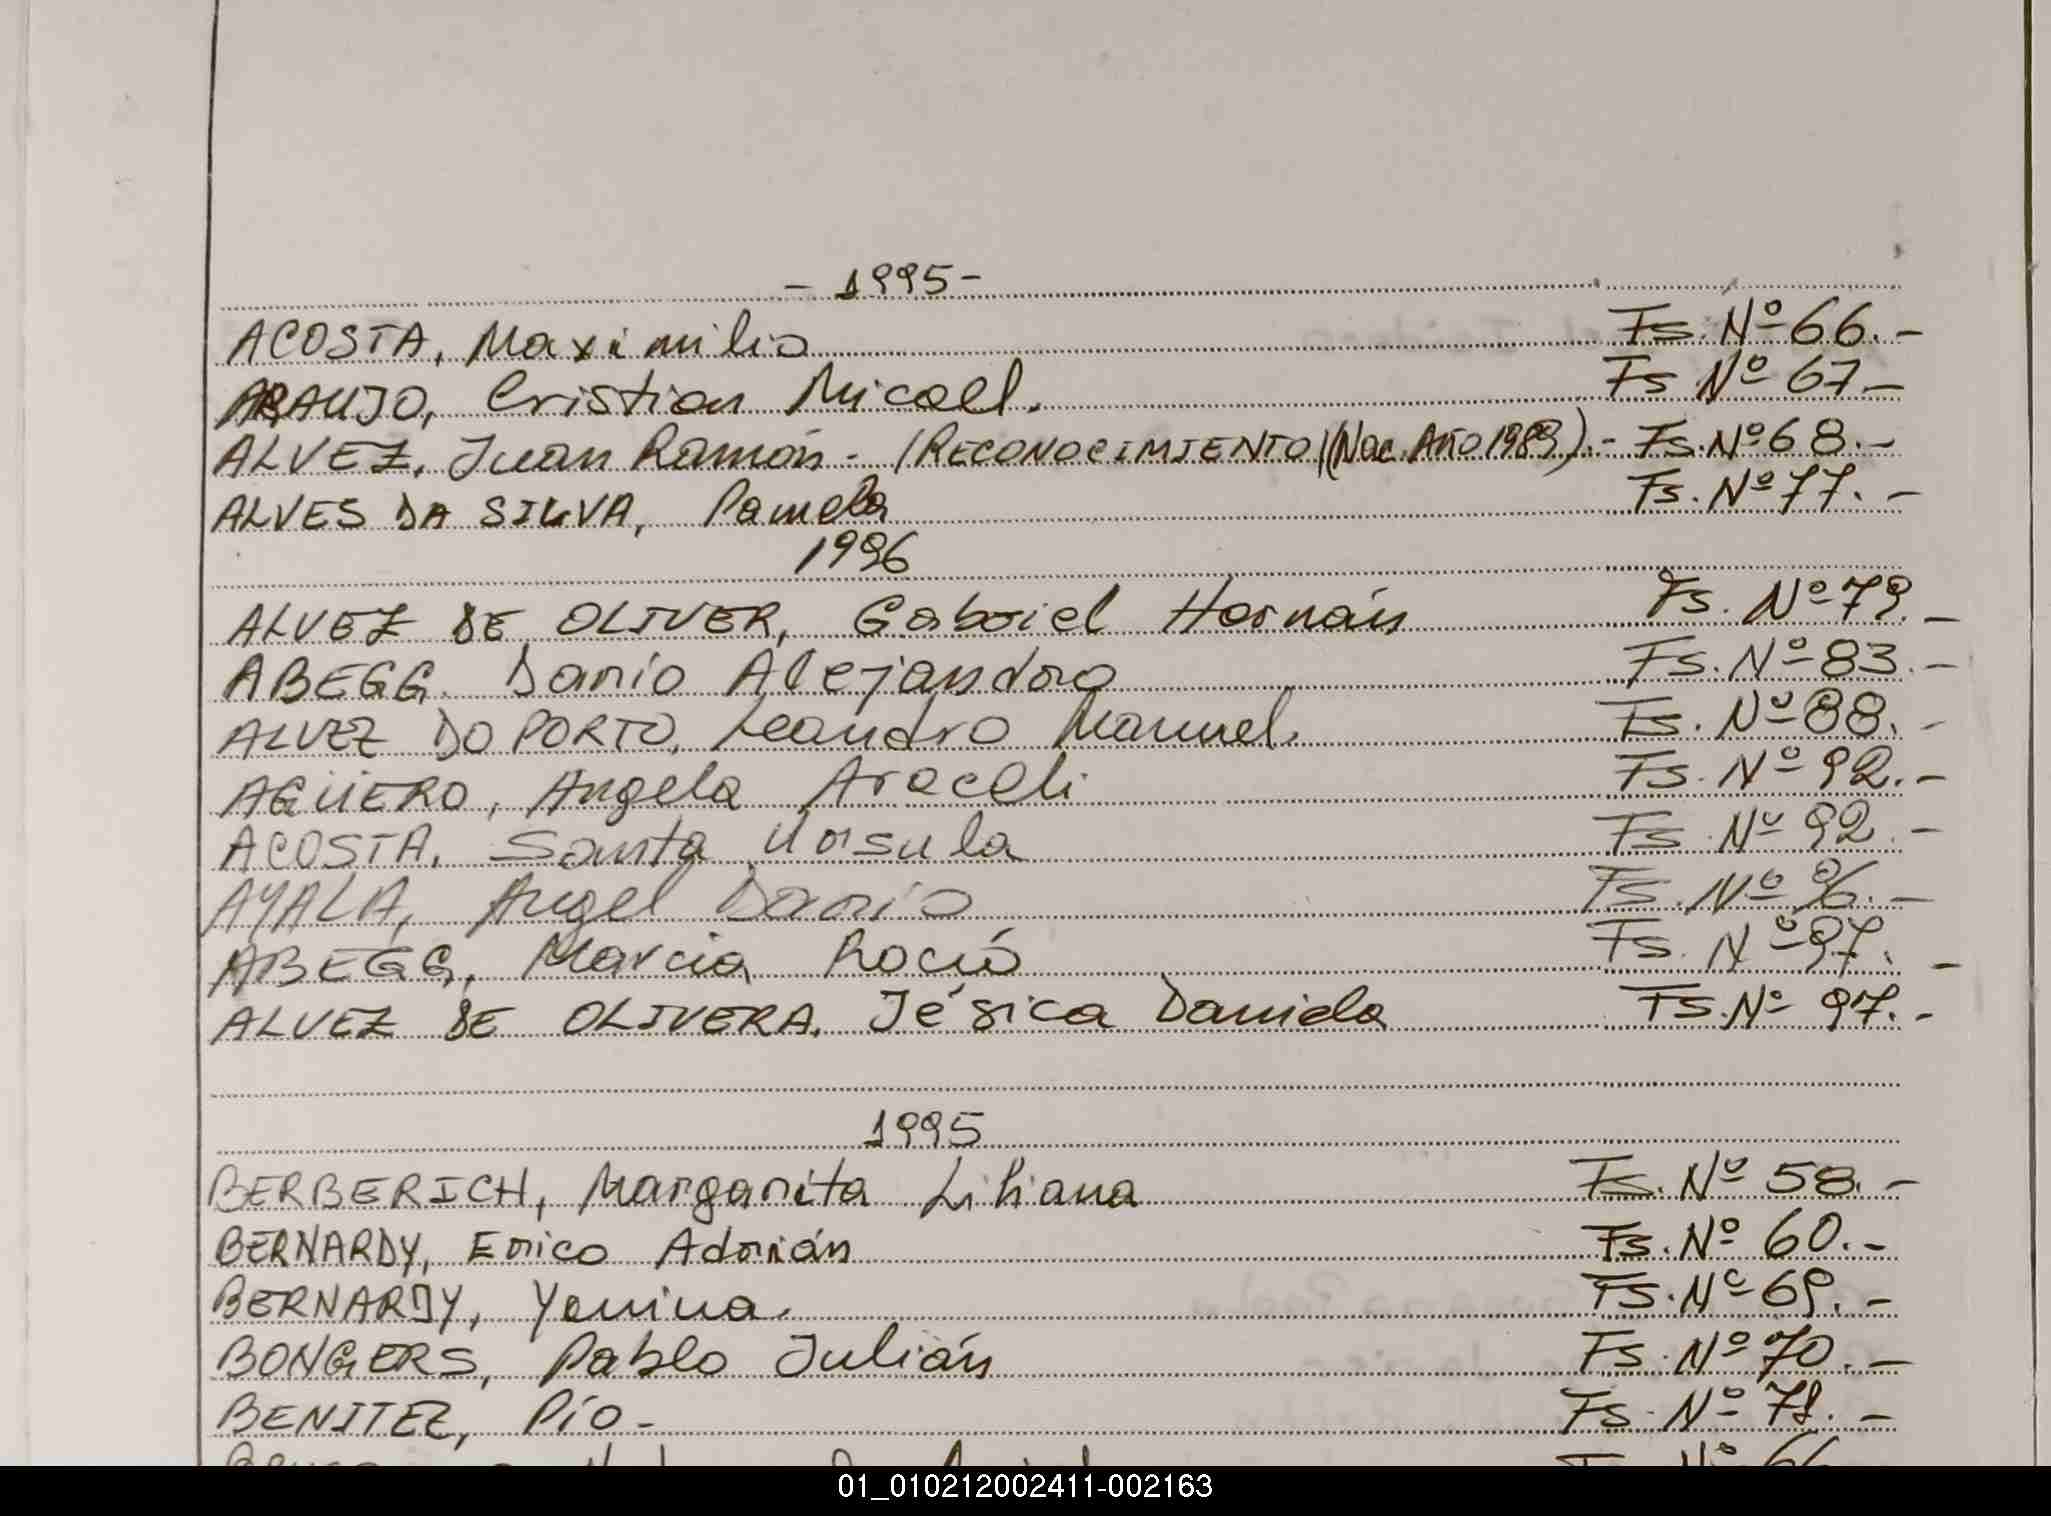 - 1995 -
ACOSTA, Maximilio Fs. Nº 66.-
ARAUJO, Cristian Micael. Fs Nº 67.-
ALVEZ, Juan Ramón - (RECONOCIMIENTO)(Nac. Año 1983).- Fs. Nº 68.-
ALVES DA SILVA, Pamela Fs. Nº 77.-
1996
ALVEZ DE OLIVER, Gabriel Hernán Fs. Nº 79.-
ABEGG. Dario Alejandro Fs. Nº 83.-
ALVEZ DO PORTO, Leandro Manuel. Fs. Nº 88.-
AGÜERO, Angela Araceli Fs. Nº 92.-
ACOSTA, Santa Ursula Fs. Nº 92.-
AYALA, Angel Dario Fs. Nº 96.-
ABEGG, Marcia Roció Fs. Nº 97.-
ALVEZ DE OLIVERA, Jésica Daniela Fs. Nº 97.-
1995
BERBERICH, Margarita Liliana Fs. Nº 58.-
BERNARDY, Erico Adrián Fs. Nº 60.-
BERNARDY, Yanina. Fs. Nº 69.-
BONGERS, Pablo Julián Fs. Nº 70.-
BENITEZ, Pío - Fs. Nº 71.-
01_010212002411-002163